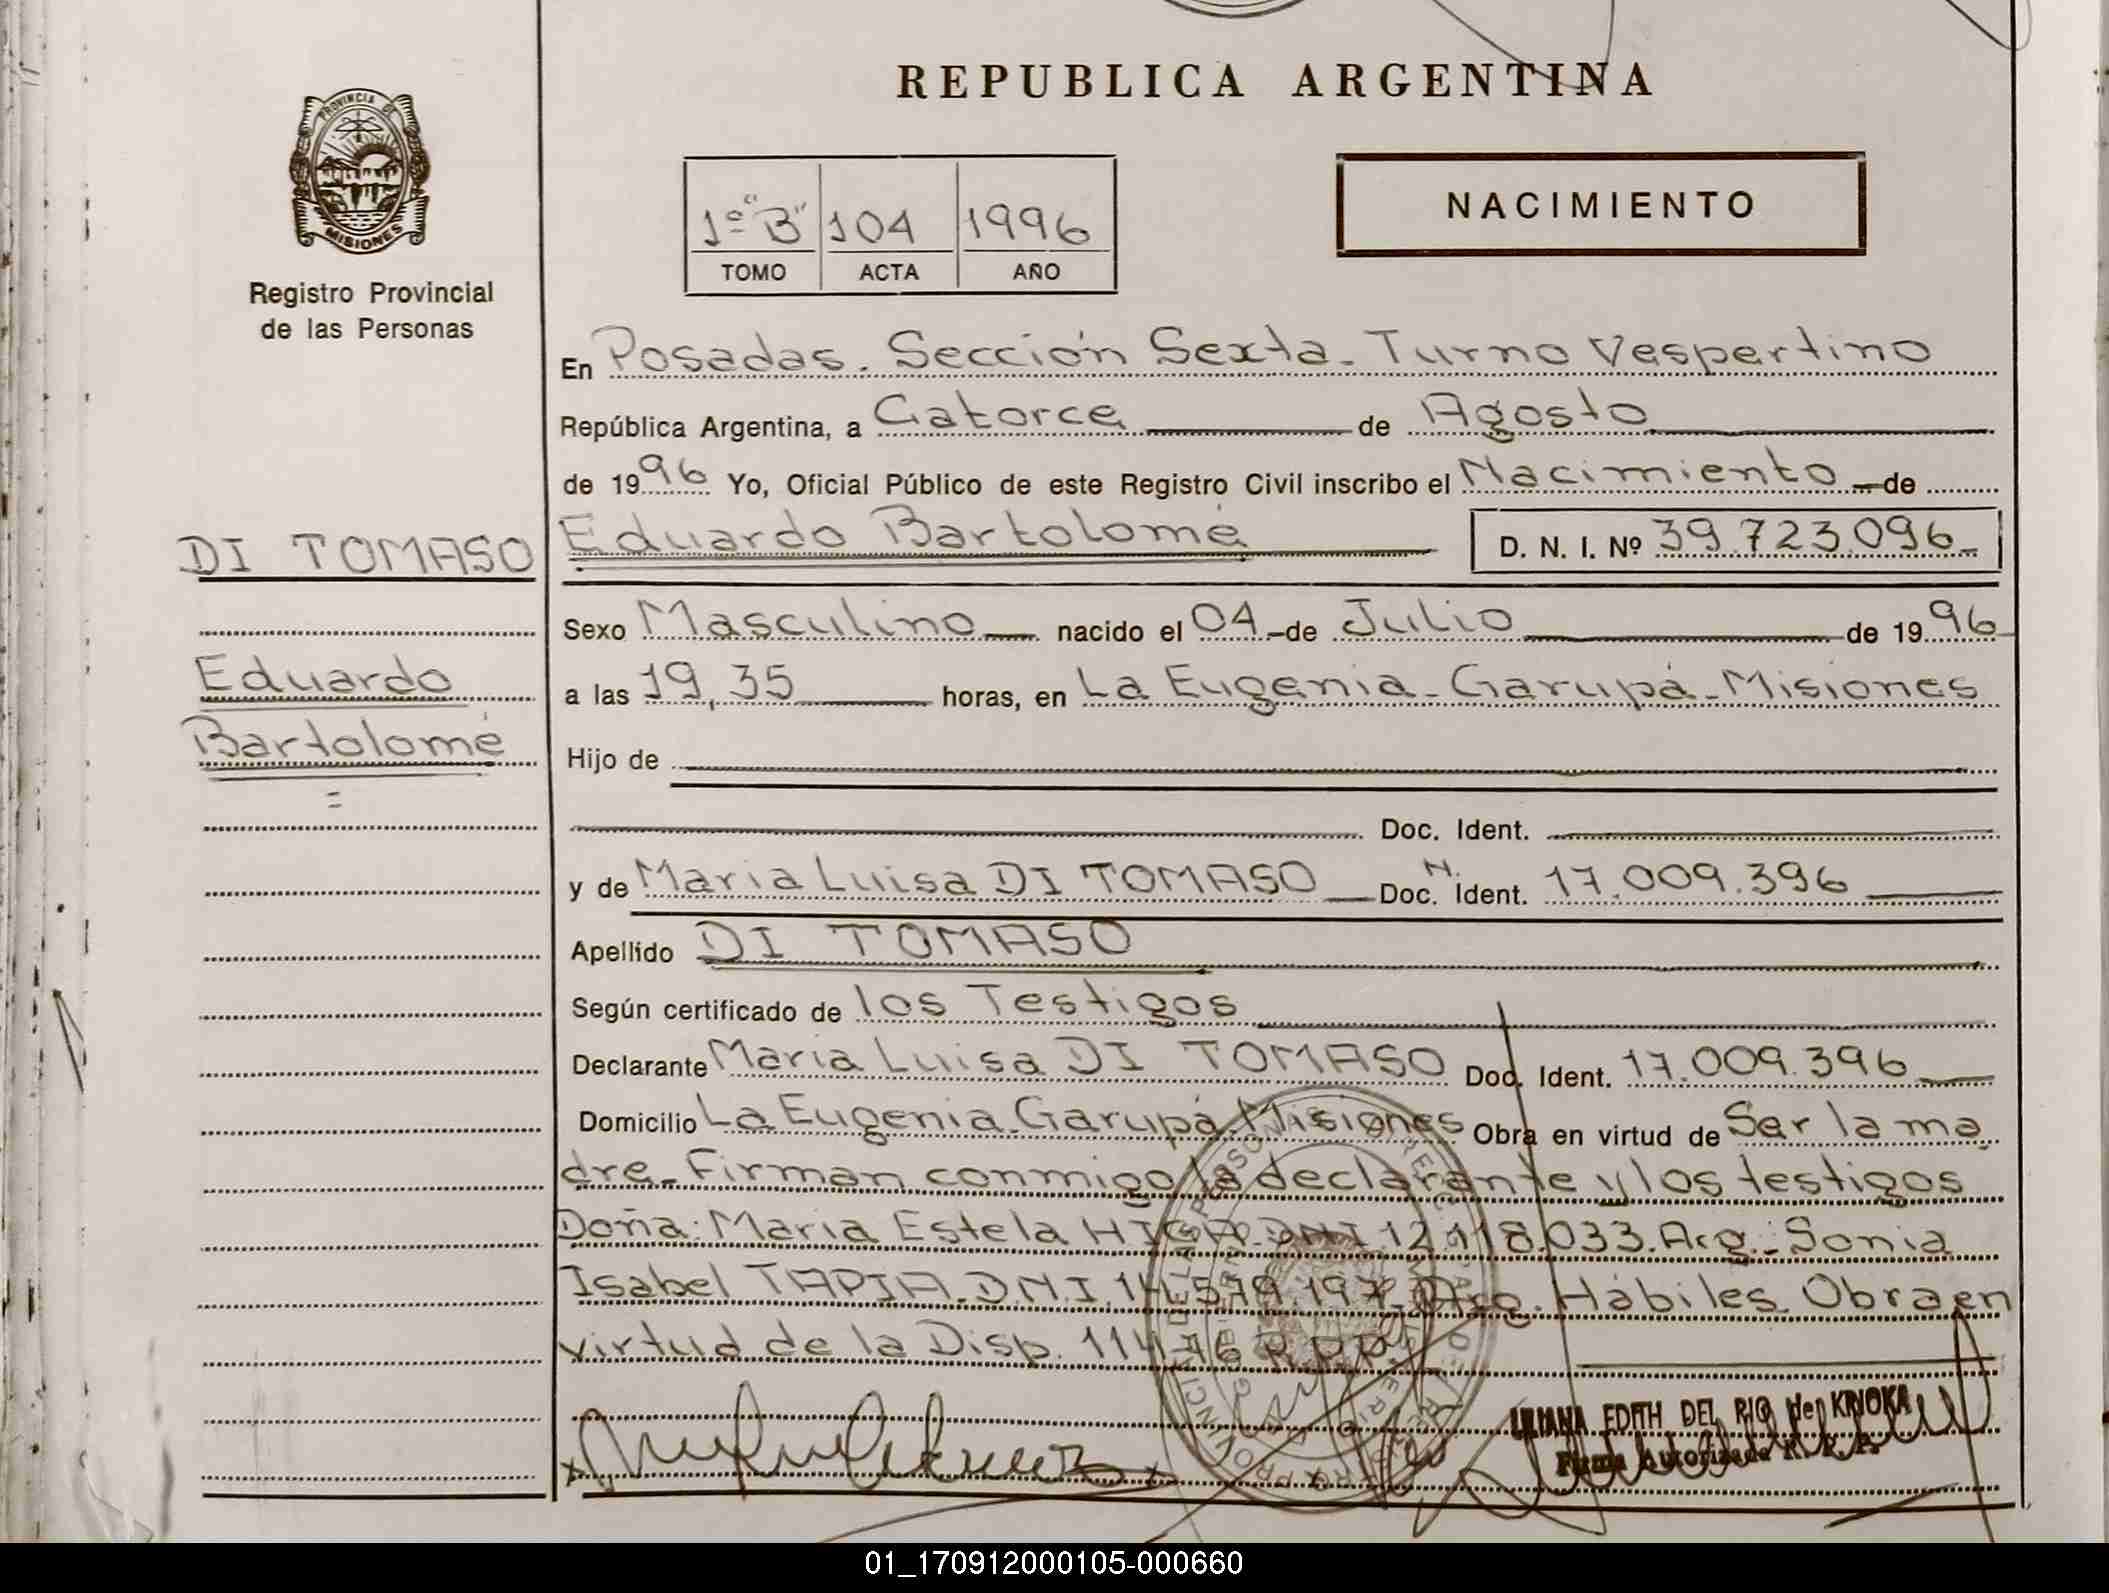 REPUBLICA ARGENTINA
PROVINCIA DE
MISIONES
Registro Provincial
de las Personas
1º "B" 104 1996
TOMO ACTA AÑO
NACIMIENTO
En Posadas. Sección Sexta - Turno Vespertino
República Argentina, a Catorce de Agosto
de 1996 Yo, Oficial Público de este Registro Civil inscribo el Nacimiento de
DI TOMASO
Eduardo Bartolomé D. N. I. Nº 39.723.096
Sexo Masculino nacido el 04 de Julio de 1996
Eduardo
a las 19,35 horas, en La Eugenia - Garupá - Misiones
Bartolomé
Hijo de
Doc. Ident.
y de Maria Luisa DI TOMASO Doc. N. Ident. 17.009.396
Apellido DI TOMASO
Según certificado de los Testigos
Declarante Maria Luisa DI TOMASO Doc. Ident. 17.009.396
Domicilio La Eugenia - Garupá - Misiones Obra en virtud de Ser la ma
dre - Firman conmigo la declarante y los testigos
Doña: Maria Estela DNI 12.118.033. Arg. - Sonia
Isabel TAPIA. D.N.I. 14.579.197 - Arg. Hábiles. Obra en
virtud de la Disp.
LILIANA EDITH DEL RIO de KRJOKA
Firma Autorizada R. P. P.
01_170912000105-000660